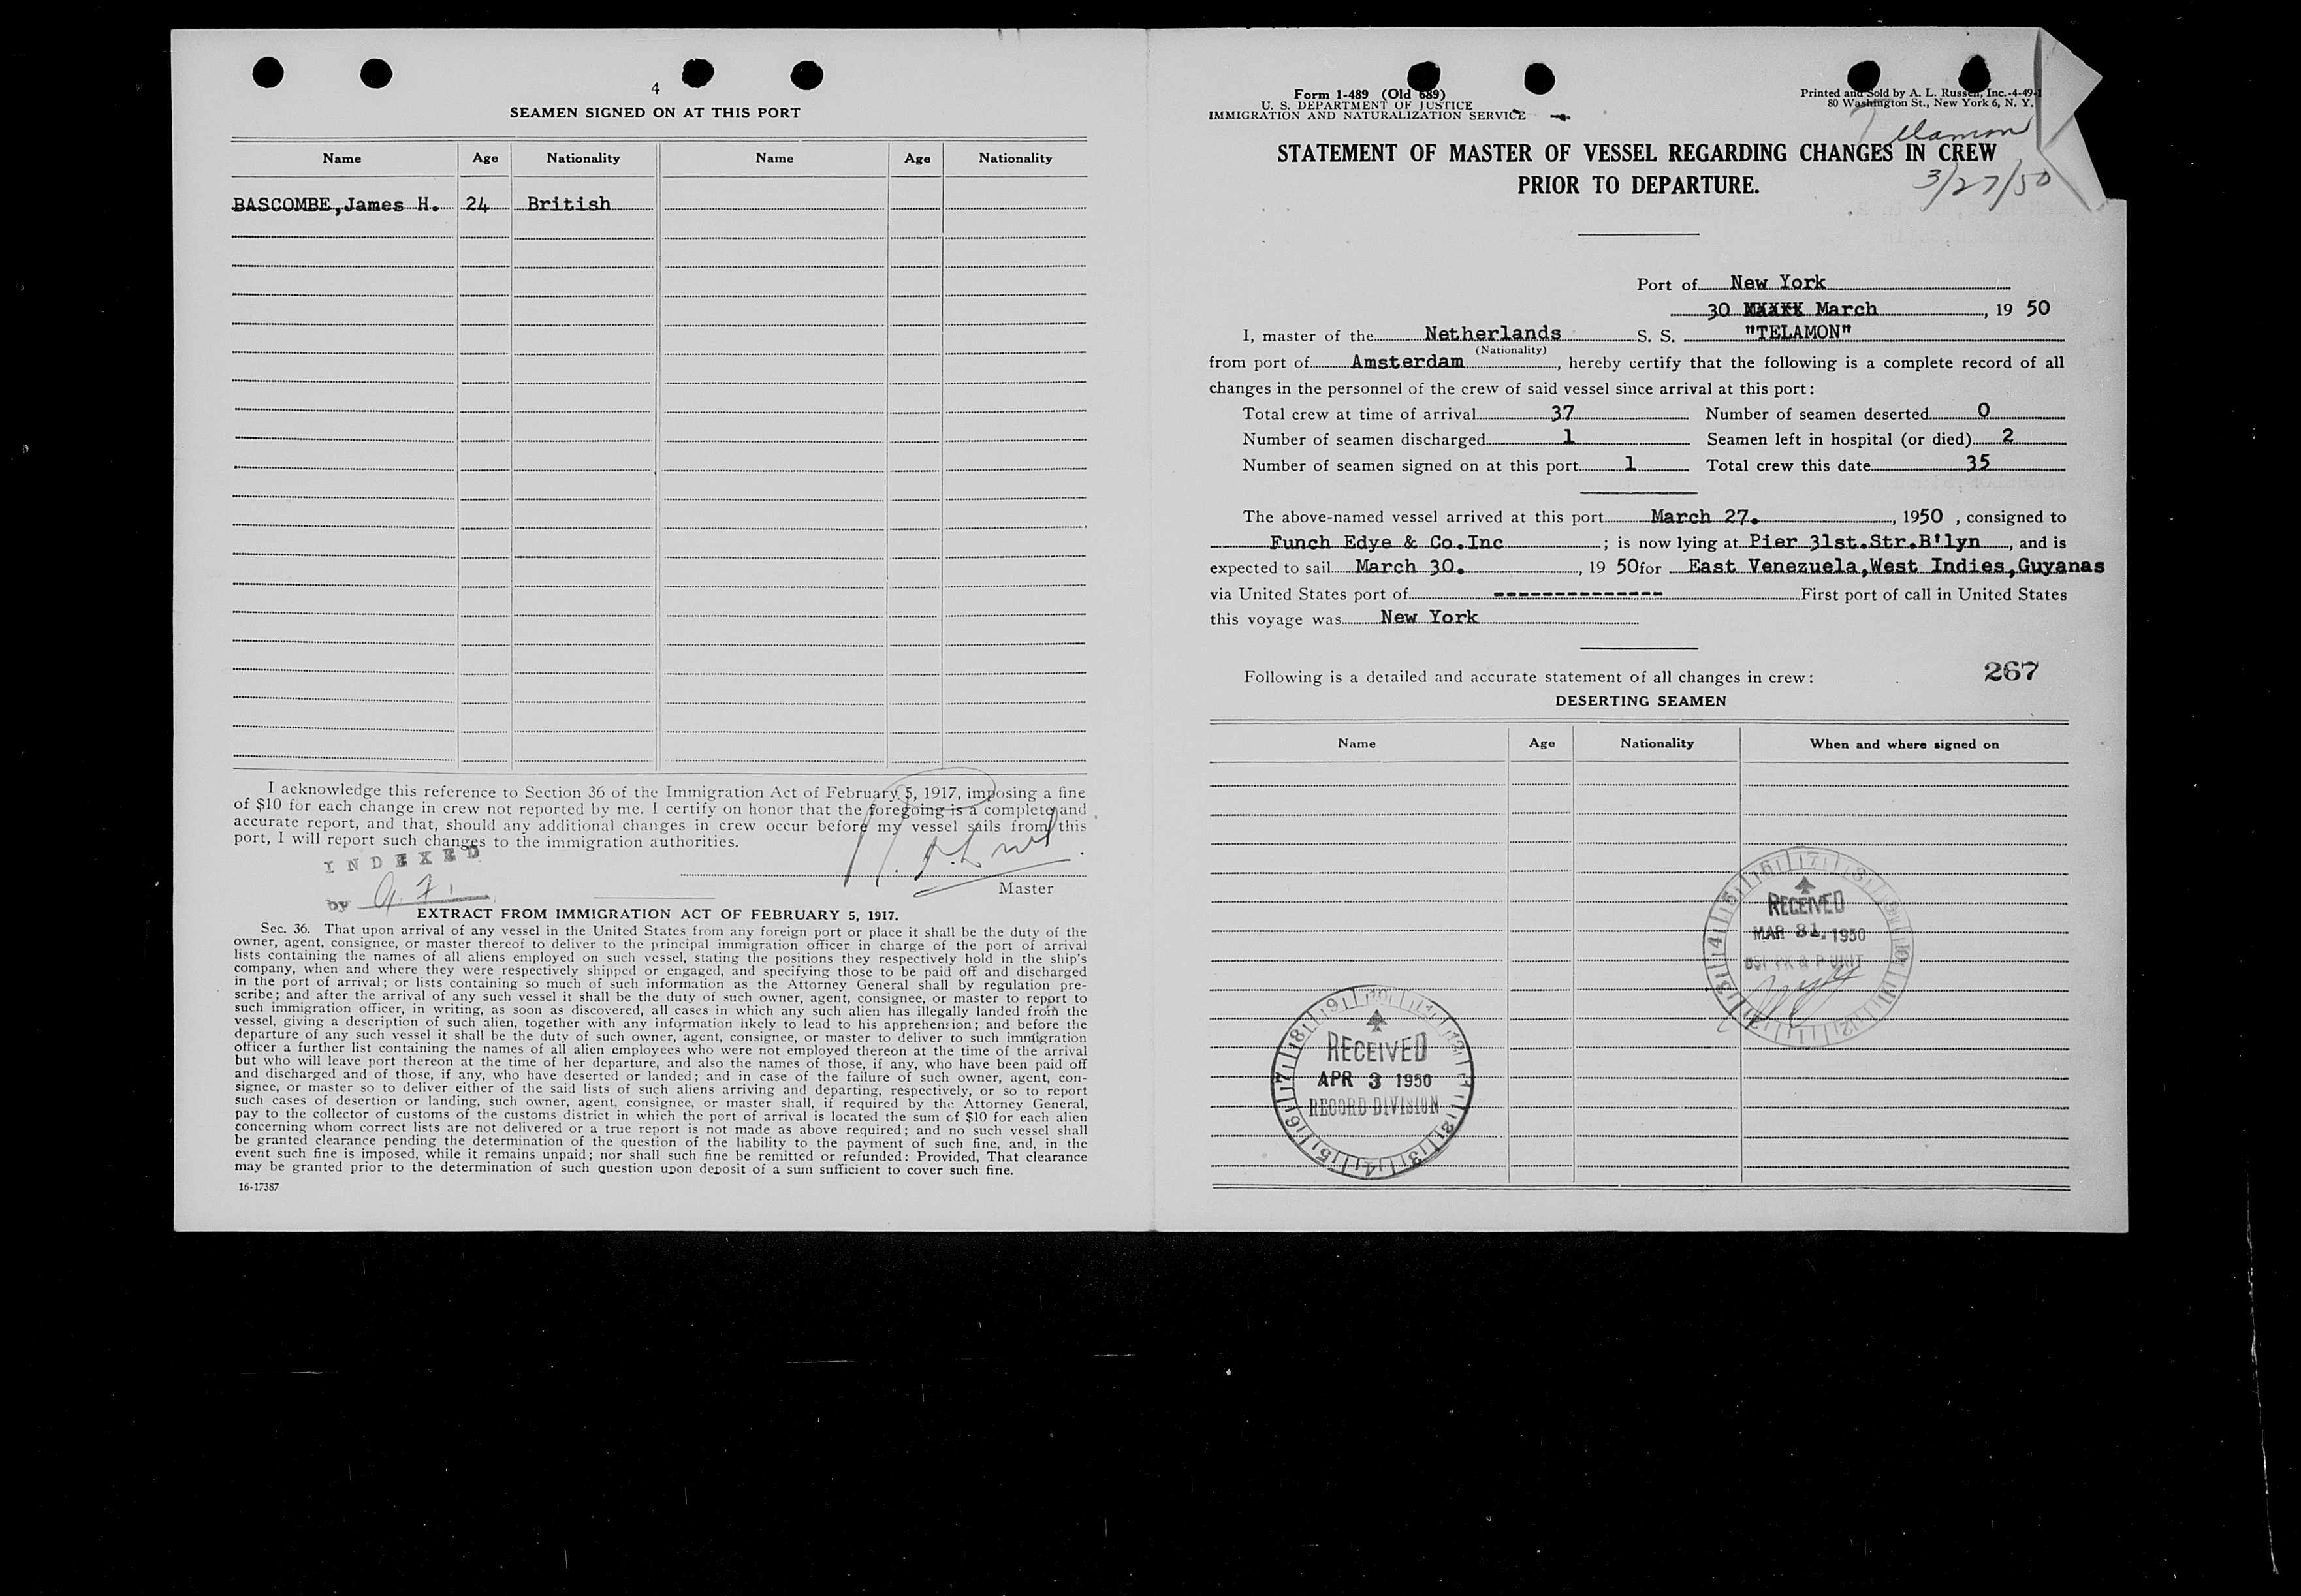 4
SEAMEN SIGNED ON AT THIS PORT
Name Age Nationality Name Age Nationality
BASCOMBE, James H. 24 British
I acknowledge this reference to Section 36 of the Immigration Act of February 5, 1917, imposing a fine
of $10 for each change in crew not reported by me. I certify on honor that the foregoing is a complete and
accurate report, and that, should any additional changes in crew occur before my vessel sails from this
port, I will report such changes to the immigration authorities.
INDEXED
by
Master
EXTRACT FROM IMMIGRATION ACT OF FEBRUARY 5, 1917.
Sec. 36. That upon arrival of any vessel in the United States from any foreign port or place it shall be the duty of the
owner, agent, consignee, or master thereof to deliver to the principal immigration officer in charge of the port of arrival
lists containing the names of all aliens employed on such vessel, stating the positions they respectively hold in the ship's
company, when and where they were respectively shipped or engaged, and specifying those to be paid off and discharged
in the port of arrival; or lists containing so much of such information as the Attorney General shall by regulation pre-
scribe; and after the arrival of any such vessel it shall be the duty of such owner, agent, consignee, or master to report to
such immigration officer, in writing, as soon as discovered, all cases in which any such alien has illegally landed from the
vessel, giving a description of such alien, together with any information likely to lead to his apprehension; and before the
departure of any such vessel it shall be the duty of such owner, agent, consignee, or master to deliver to such immigration
officer a further list containing the names of all alien employees who were not employed thereon at the time of the arrival
but who will leave port thereon at the time of her departure, and also the names of those, if any, who have been paid off
and discharged and of those, if any, who have deserted or landed; and in case of the failure of such owner, agent, con-
signee, or master so to deliver either of the said lists of such aliens arriving and departing, respectively, or so to report
such cases of desertion or landing, such owner, agent, consignee, or master shall, if required by the Attorney General,
pay to the collector of customs of the customs district in which the port of arrival is located the sum of $10 for each alien
concerning whom correct lists are not delivered or a true report is not made as above required; and no such vessel shall
be granted clearance pending the determination of the question of the liability to the payment of such fine, and, in the
event such fine is imposed, while it remains unpaid; nor shall such fine be remitted or refunded: Provided, That clearance
may be granted prior to the determination of such question upon deposit of a sum sufficient to cover such fine.
16-17387
Form 1-489 (Old 689)
U. S. DEPARTMENT OF JUSTICE
IMMIGRATION AND NATURALIZATION SERVICE
Printed and Sold by A. L. Russell, Inc.-4-49-1
80 Washington St., New York 6, N. Y.
Telamon
STATEMENT OF MASTER OF VESSEL REGARDING CHANGES IN CREW
PRIOR TO DEPARTURE.
3/27/50
Port of New York
30 March, 19 50
I, master of the Netherlands S. S. "TELAMON"
(Nationality)
from port of Amsterdam, hereby certify that the following is a complete record of all
changes in the personnel of the crew of said vessel since arrival at this port:
Total crew at time of arrival 37 Number of seamen deserted 0
Number of seamen discharged 1 Seamen left in hospital (or died) 2
Number of seamen signed on at this port 1 Total crew this date 35
The above-named vessel arrived at this port March 27., 1950, consigned to
Funch Edye & Co.Inc; is now lying at Pier 31st.Str.B'lyn, and is
expected to sail March 30., 19 50 for East Venezuela,West Indies,Guyanas
via United States port of -------------- First port of call in United States
this voyage was New York
Following is a detailed and accurate statement of all changes in crew:
267
DESERTING SEAMEN
Name Age Nationality When and where signed on
RECEIVED
MAR 31. 1950
RECEIVED
APR 3 1950
RECORD DIVISION